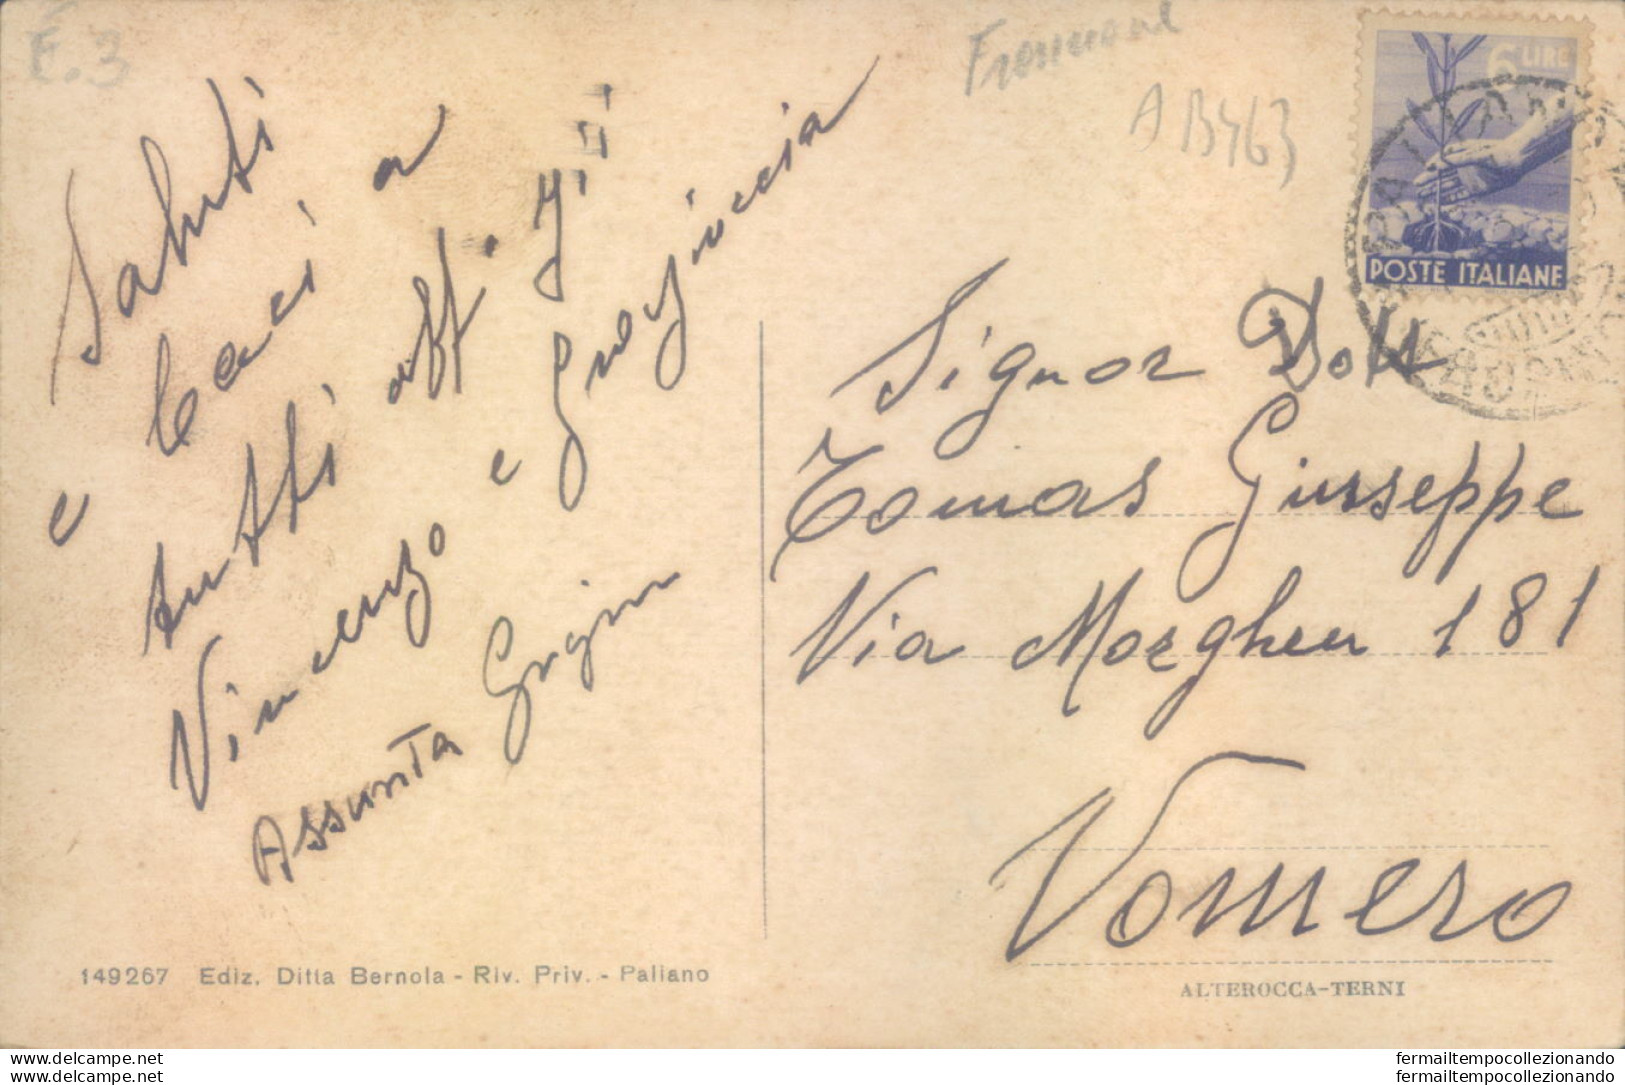 E.3
AB463
6 LIRE
POSTE ITALIANE
PALIANO
Saluti
e baci a
tutti aff.
Vincenzo e
Assunta
Signor Dott
Tomas Giuseppe
Via Morghen 181
Vomero
149267 Ediz. Ditta Bernola - Riv. Priv. - Paliano
ALTEROCCA-TERNI
fermailtempocollezionando
fermailtempocollezionando
www.delcampe.net
www.delcampe.net